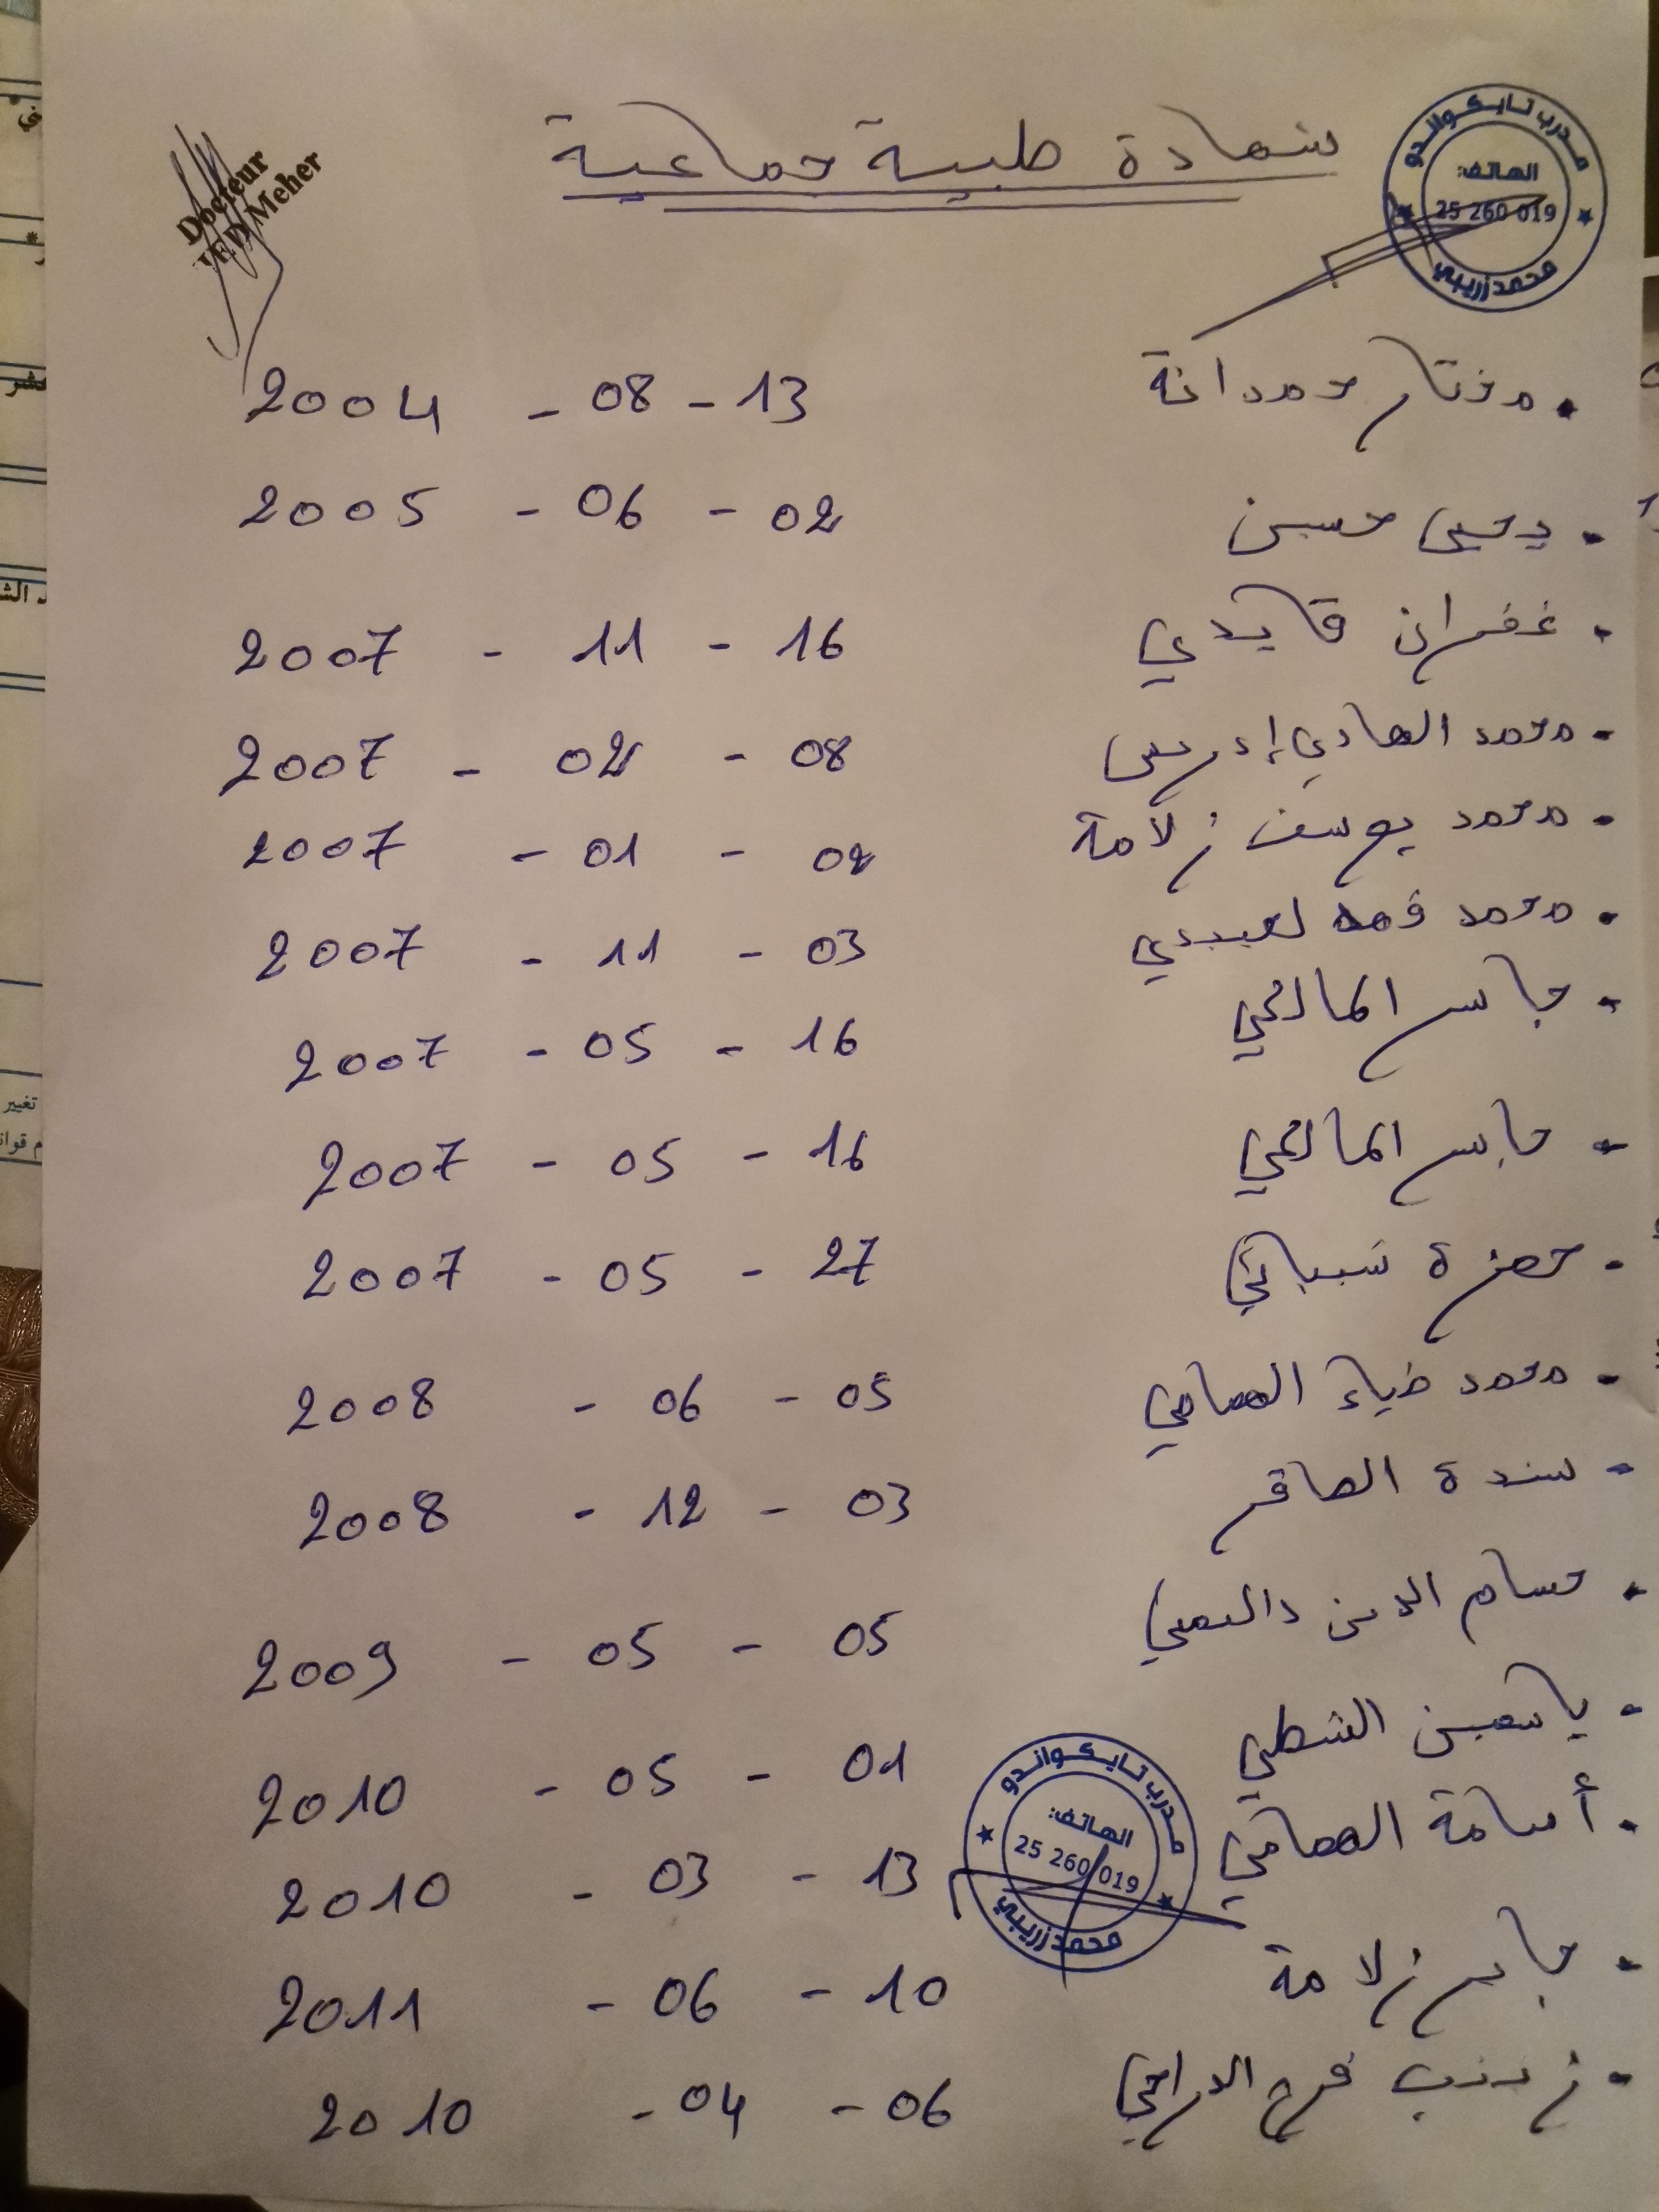 شهادة طبية جماعية
مدرب تايكواندو
الهاتف:
25 260 019
محمد زريبي
Docteur
Meher
مختار حمدانة 13 - 08 - 2004
يحيى حسين 02 - 06 - 2005
غفران قايدي 16 - 11 - 2007
محمد الهادي إدريس 08 - 02 - 2007
محمد يوسف زلامة 02 - 01 - 2007
محمد فهد لعبيدي 03 - 11 - 2007
جاسر المالحي 16 - 05 - 2007
حابس المالحي 16 - 05 - 2007
حمزة 27 - 05 - 2007
محمد ضياء 05 - 06 - 2008
سندة الصاقر 03 - 12 - 2008
حسام الدين 05 - 05 - 2009
ياسمين الشطي 01 - 05 - 2010
أسامة 13 - 03 - 2010
مدرب تايكواندو
الهاتف:
25 260 019
محمد زريبي
جاسر زلامة 10 - 06 - 2011
زينب فرج 06 - 04 - 2010
تغيير